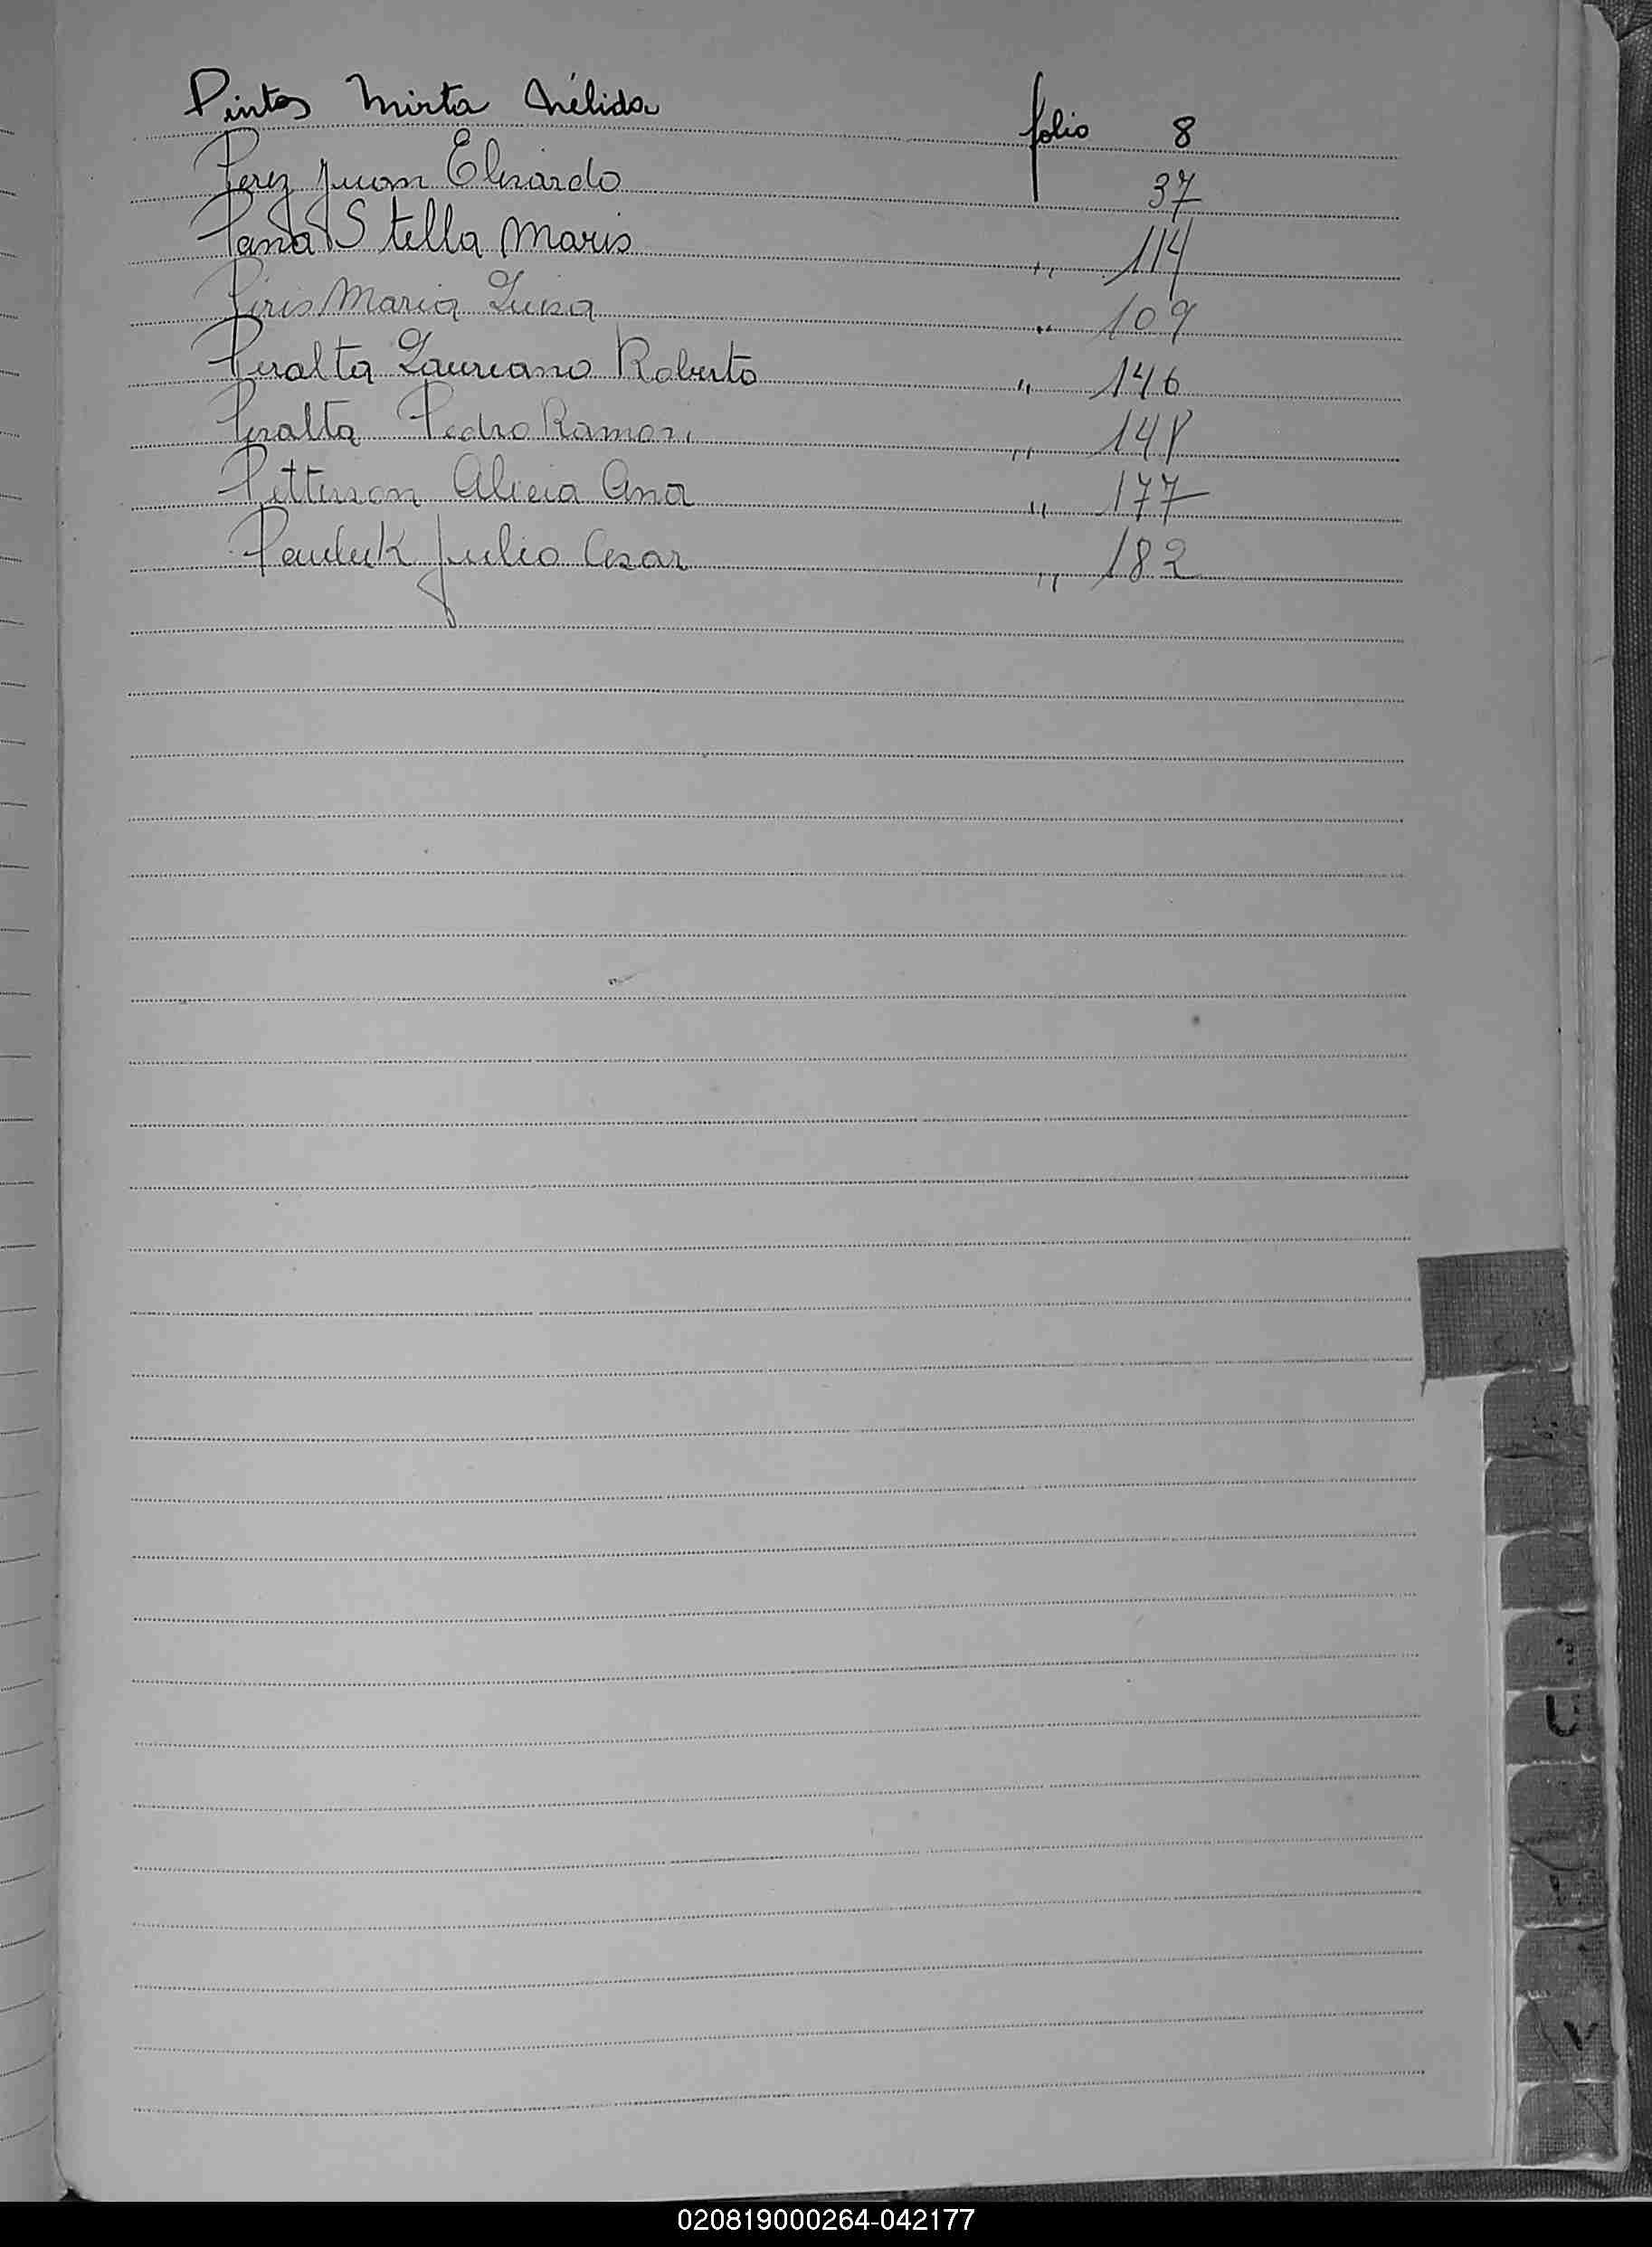 Pintos Mirta Nélida folio 8
Perez Juan Elisardo 37
Pana Stella Maris ,, 114
Piris Maria Luisa ,, 109
Peralta Laureano Roberto ,, 146
Peralta Pedro Ramon ,, 148
Petterson Alicia Ana ,, 177
Pauluk Julio Cesar ,, 182
020819000264-042177